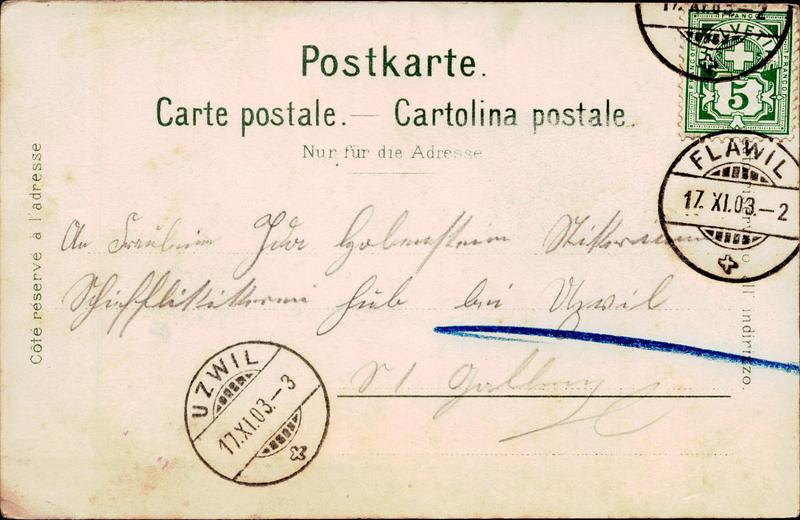 17. XI. 03.–2
HELVETIA
FRANCO
FRANCO
FRANCO
5
Postkarte.
Carte postale. — Cartolina postale.
Nur für die Adresse
Côté réservé à l'adresse
FLAWIL
17. XI. 03.–2
An Fräulein Ida
bei Uzwil
St Gallen
UZWIL
17. XI. 03.–3
indirizzo.